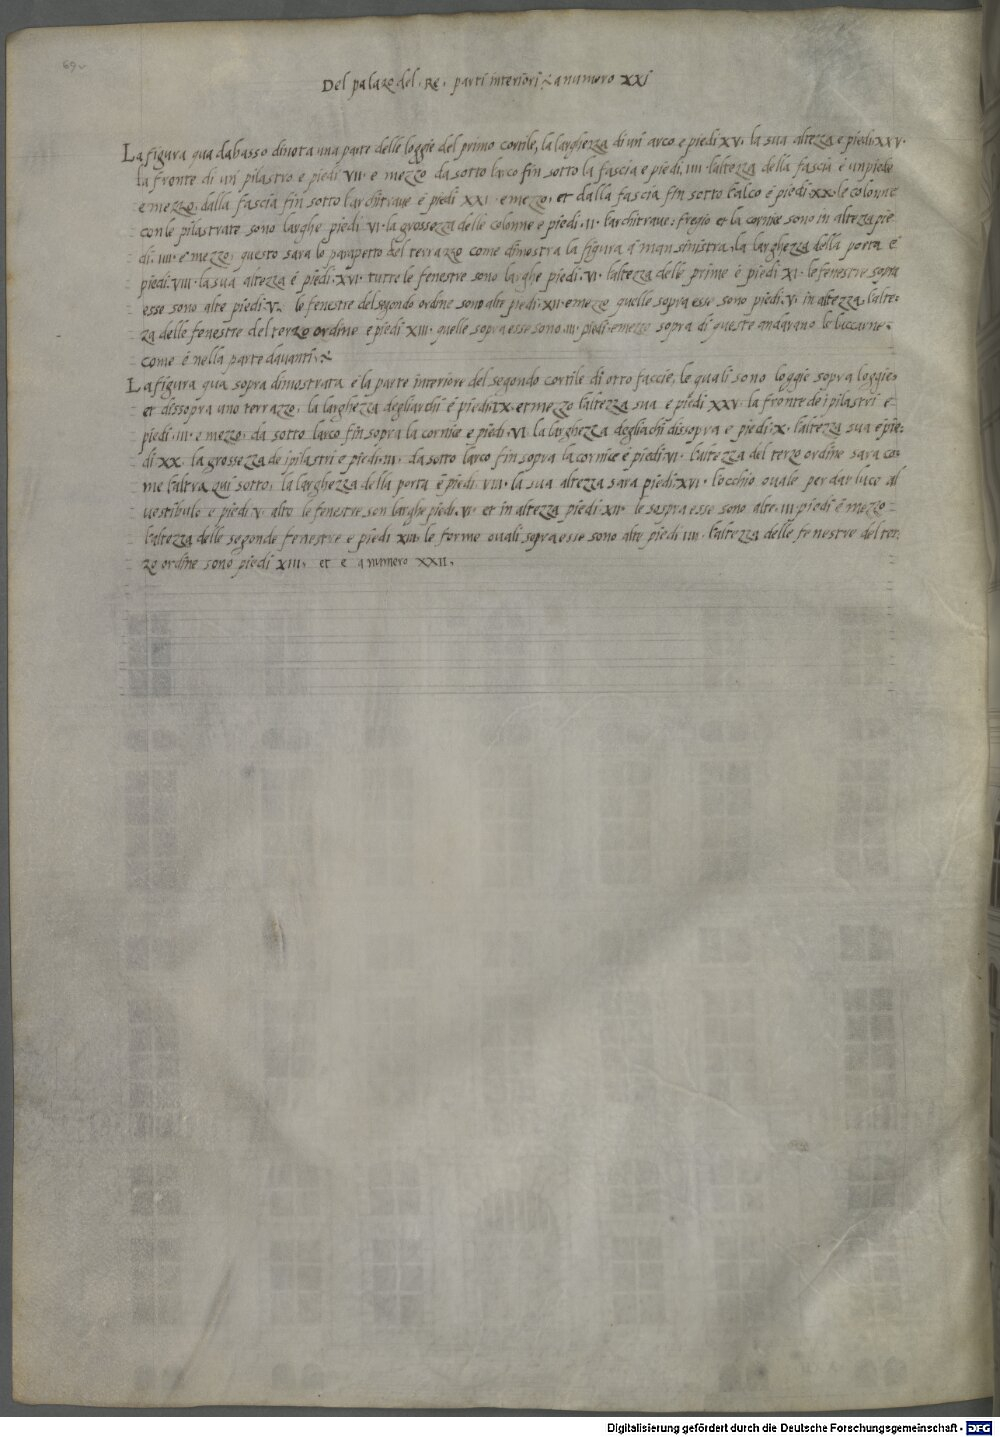 69v
Del palazo del .Re. parti interiori a numero XXI
La figura qua dabasso dinota una parte delle loggie del primo cortile, la larghezza di un' arco e piedi XV. la sua altezza e piedi XXV.
la fronte di un' pilastro e piedi VII e mezzo da sotto larco fin sotto la fascia e piedi, IIII l'altezza della fascia é un piede
e mezzo, dalla fascia fin sotto l'architrave é piedi XXI e mezzo, et dalla fascia fin sotto l'alco é piedi XX. le colonne
con le pilastrate sono larghe piedi VI. la grossezza delle colonne e piedi .II. l'architrave, fregio et la cornice sono in altezza pie
di. IIII e mezzo, questo sara lo parapetto del terrazzo come dimostra la figura á man sinistra, la larghezza della porta é
piedi. VIII. la sua altezza é piedi. XVI. tutte le fenestre sono larghe piedi. VI. l'altezza delle prime é piedi XI. le fenestre sopra
esse sono alte piedi .V. le fenestre del segondo ordine sono alte piedi XII e mezzo quelle sopra esse sono piedi .V. in altezza. l'alte-
za delle fenestre del terzo ordine e piedi XIII. quelle sopra esse sono .III. piedi e mezzo sopra di queste andarano le luccarne
come é nella parte davanti.
La figura qua sopra dimostrata e la parte interiore del segondo cortile di otto faccie, le quali sono loggie sopra loggie,
et dissopra uno terrazzo, la larghezza degli archi é piedi. IX. et mezzo l'altezza sua e piedi XXV. la fronte de i pilastri e
piedi .III. e mezzo, da sotto larco fin sopra la cornice e piedi .VI. la larghezza degliachi dissopra e piedi .X. l'altezza sua e pie-
di XX. la grossezza de i pilastri e piedi .III. da sotto larco fin sopra la cornice é piedi VI. l'altezza del terzo ordine sara co-
me l'altra qui sotto, la larghezza della porta é piedi VIII. la sua altezza sara piedi XVI. l'occhio ovale per dar luce al
vestibulo e piedi V alto le fenestre son larghe piedi .VI. et in altezza piedi XII le supra esse sono alte. III piedi é mezzo
l'altezza delle segonde fenestre e piedi XIII. le forme ovali sopra esse sono alte piedi IIII. l'altezza delle fenestre del ter.
zo ordine sono piedi XIII. et e a numero XXII.
Digitalisierung gefördert durch die Deutsche Forschungsgemeinschaft - DFG